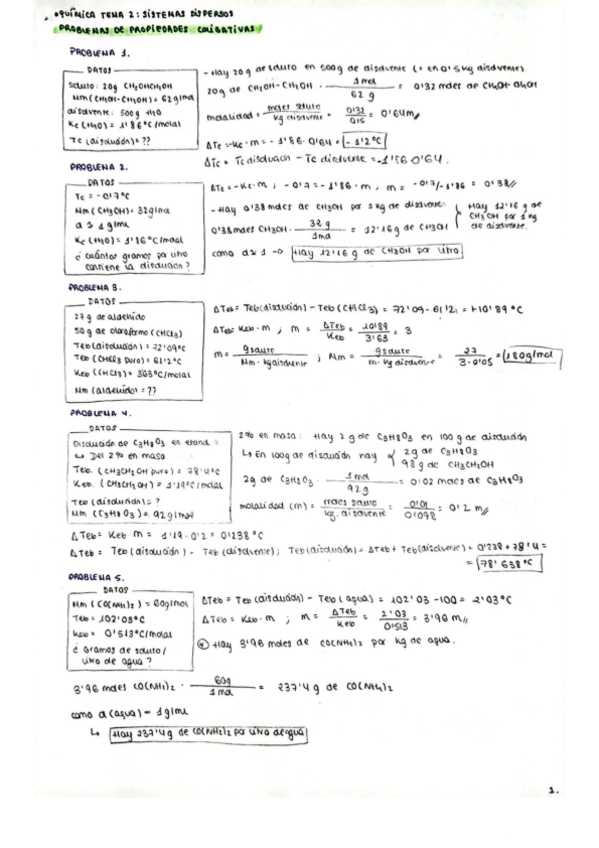 QUÍMICA TEMA 2: SISTEMAS DISPERSOS
PROBLEMAS DE PROPIEDADES COLIGATIVAS
PROBLEMA 1.
DATOS
Soluto: 20g CH2OHCH2OH
Mm (CH2OH-CH2OH) = 62g/mol
disolvente: 500g H2O
Kc (H2O) = 1'86 °C/molal
Tc (disolución) = ??
- Hay 20 g de soluto en 500g de disolvente (= en 0'5 kg disolvente)
20g de CH2OH-CH2OH · 1mol / 62 g = 0'32 moles de CH2OH-CH2OH
molalidad = moles soluto / kg disolvente = 0'32 / 0'5 = 0'64m
ΔTc = -Kc · m = -1'86 · 0'64 = -1'2°C
ΔTc = Tc disolución - Tc disolvente = -1'86 0'64.
PROBLEMA 2.
DATOS
Tc = -0'7°C
Mm (CH3OH) = 32g/mol
d ≃ 1 g/ml
Kc (H2O) = 1'86 °C/molal
¿ cuántos gramos por litro
contiene la disolución ?
ΔTc = -Kc·m ; -0'7 = -1'86 · m , m = -0'7/-1'86 = 0'38//
- Hay 0'38 moles de CH3OH por 1 kg de disolvente
0'38 moles CH3OH · 32 g / 1mol = 12'16 g de CH3OH
Hay 12'16 g de
CH3OH por 1 kg
de disolvente.
como d ≃ 1 → Hay 12'16 g de CH3OH por litro
PROBLEMA 3.
DATOS
27 g de aldehído
50g de cloroformo (CHCl3)
Teb (disolución) = 72'09°C
Teb (CHCl3 puro) = 61'2°C
Keb (CHCl3) = 3'63°C/molal
Mm (aldehído) = ??
ΔTeb = Teb (disolución) - Teb (CHCl3) = 72'09 - 61'2 = +10'89 °C
ΔTeb = Keb · m , m = ΔTeb / Keb = 10'89 / 3'63 = 3
m = g soluto / Mm · kg disolvente ; Mm = g soluto / m · kg disolvente = 27 / 3·0'05 = 180g/mol
PROBLEMA 4.
DATOS
Disolución de C3H8O3 en etanol
↳ Del 2% en masa
Teb. (CH3CH2OH puro) = 78'4°C
Keb. (CH3CH2OH) = 1'19°C/molal
Teb (disolución) = ?
Mm (C3H8O3) = 92g/mol
2% en masa: Hay 2 g de C3H8O3 en 100 g de disolución
↳ En 100g de disolución hay 2g de C3H8O3
98 g de CH3CH2OH
2g de C3H8O3 · 1mol / 92g = 0'02 moles de C3H8O3
molalidad (m) = moles soluto / kg. disolvente = 0'01 / 0'098 = 0'2 m//
ΔTeb = Keb · m = 1'19 · 0'2 = 0'238°C
ΔTeb = Teb (disolución) - Teb (disolvente) ; Teb (disolución) = ΔTeb + Teb (disolvente) = 0'238 + 78'4 =
= 78'638°C
PROBLEMA 5.
DATOS
Mm (CO(NH2)2) = 60g/mol
Teb = 102'03°C
Keb = 0'513°C/molal
¿ Gramos de soluto /
litro de agua ?
ΔTeb = Teb (disolución) - Teb (agua) = 102'03 - 100 = 2'03°C
ΔTeb = Keb · m ; m = ΔTeb / Keb = 2'03 / 0'513 = 3'96 m//
Hay 3'96 moles de CO(NH2)2 por kg de agua.
3'96 moles CO(NH2)2 · 60g / 1mol = 237'4 g de CO(NH2)2
como d (agua) = 1g/ml
↳ Hay 237'4 g de CO(NH2)2 por litro de agua
1.